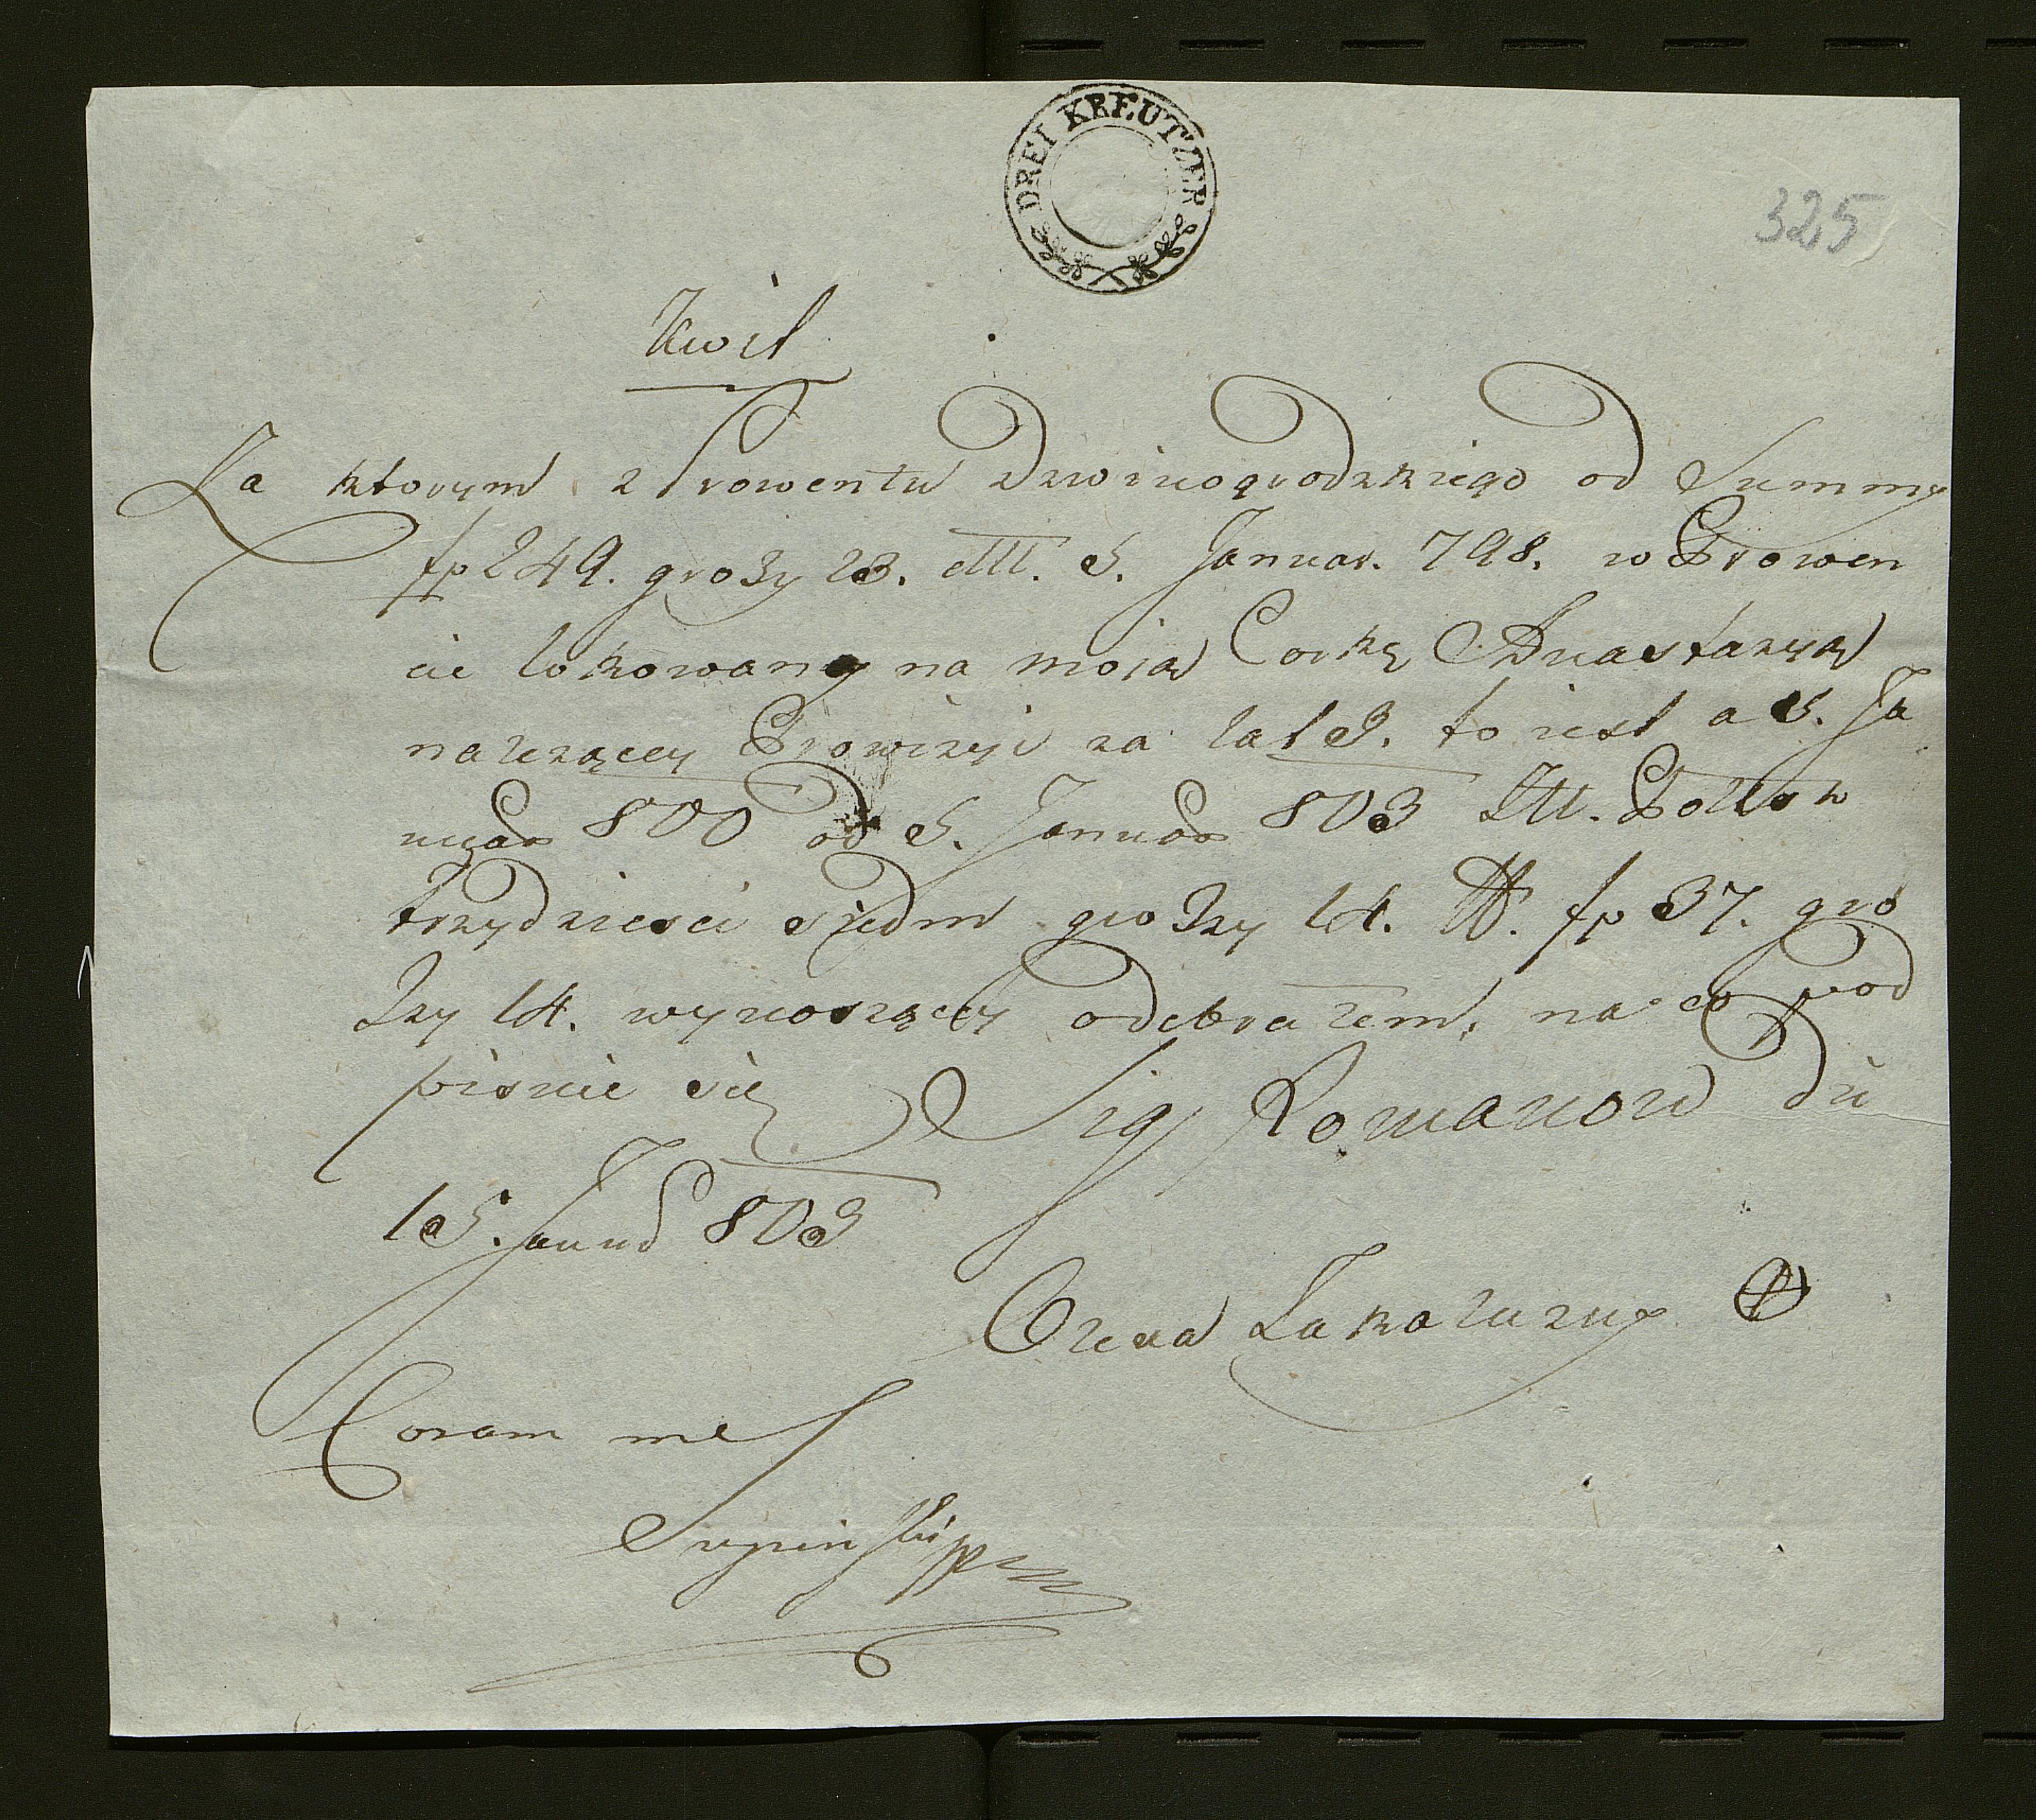 DREI KREUTZER
325
Kwit
Za ktorym z Prowentu Dzwinogrodzkiego od Summy
fp 249. groszy 23. dtt. 5. Januar. 798. w Prowen
cie lokowany na moją Corkę Anastazyą
nalezącey Prowizyi za lat 3. to iest a 5. Ja
nuar 800 ad 5. Januar 803 Ztt. Polsk
trzydziesci siedm groszy 14. fp 37. gro
szy 14. wynoszącey odebrałem, na co pod
pisuie się Sig Romanow du
15. Janua 803
Olexa Zakaluzny
Coram me
Supinski mp